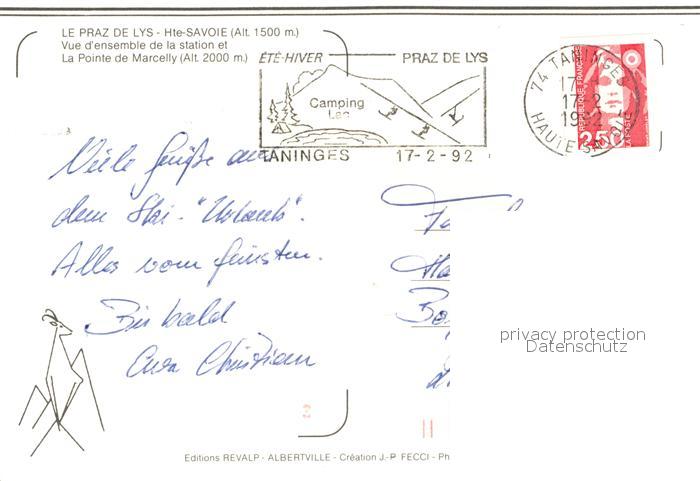 LE PRAZ DE LYS - Hte-SAVOIE (Alt. 1500 m.)
Vue d'ensemble de la station et
La Pointe de Marcelly (Alt. 2000 m.)
ÉTÉ-HIVER PRAZ DE LYS
Camping
Lac
TANINGES 17-2-92
74 TANINGES
17-2
1992
HAUTE SAVOIE
REPUBLIQUE FRANCAISE
2,50
Viele Grüße aus
dem Ski-"Urlaub".
Alles vom feinsten.
Bis bald
Euer Christian
privacy protection
Datenschutz
2
Editions REVALP - ALBERTVILLE - Création J.-P FECCI - Ph